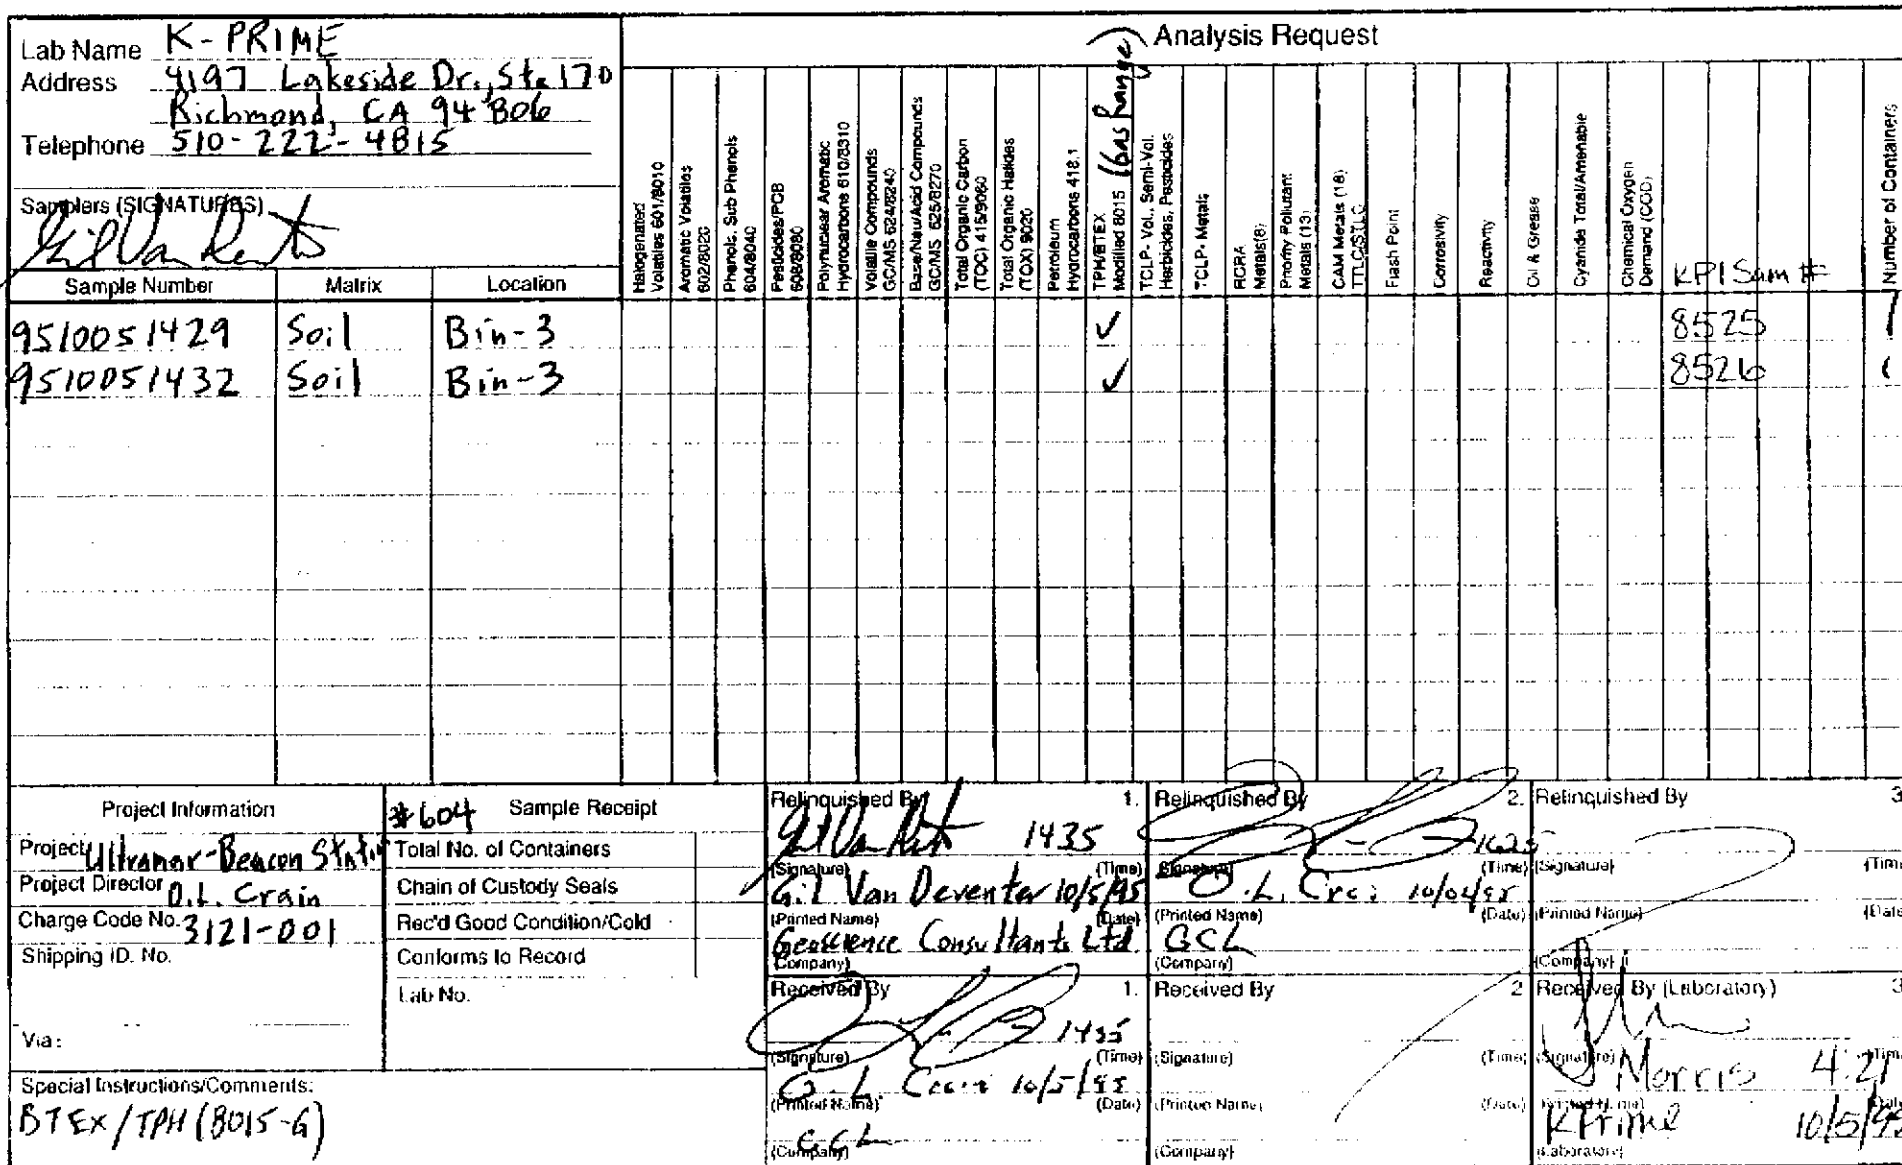 Lab Name K-PRIME
Address 4197 Lakeside Dr., Ste 170
Richmond, CA 94806
Telephone 510-222-4815
Samplers (SIGNATURES)
Analysis Request
(Gas Range)
Halogenated
Volatiles 601/8010
Aromatic Volatiles
602/8020
Phenols, Sub Phenols
604/8040
Pesticides/PCB
608/8080
Polynuclear Aromatic
Hydrocarbons 610/8310
Volatile Compounds
GC/MS 624/8240
Base/Neu/Acid Compounds
GC/MS 625/8270
Total Organic Carbon
(TOC) 415/9060
Total Organic Halides
(TOX) 9020
Petroleum
Hydrocarbons 418.1
TPH/BTEX
Modified 8015
TCLP- Vol., Semi-Vol.
Herbicides, Pesticides
TCLP- Metals
RCRA
Metals(8)
Priority Pollutant
Metals (13)
CAM Metals (18)
TTLC/STLC
Flash Point
Corrosivity
Reactivity
Oil & Grease
Cyanide Total/Amenable
Chemical Oxygen
Demand (COD)
KPI Sam #
Number of Containers
Sample Number Matrix Location
9510051429 Soil Bin-3 ✓ 8525 1
9510051432 Soil Bin-3 ✓ 8526 1
Project Information
Project Ultramar-Beacon Station
#604
Project Director D.L. Crain
Charge Code No. 3121-001
Shipping ID. No.
Via:
Sample Receipt
Total No. of Containers
Chain of Custody Seals
Rec'd Good Condition/Cold
Conforms to Record
Lab No.
Relinquished By 1.
1435
(Signature) (Time)
Gil Van Deventer 10/5/95
(Printed Name) (Date)
Geoscience Consultants Ltd
(Company)
Relinquished By 2.
1625
(Signature) (Time)
D.L. Crain 10/04/95
(Printed Name) (Date)
GCL
(Company)
Relinquished By 3
(Signature) (Time
(Printed Name) (Date
(Company)
Received By 1.
1435
(Signature) (Time)
D.L. Crain 10/5/95
(Printed Name) (Date)
GCL
(Company)
Received By 2
(Signature) (Time)
(Printed Name) (Date)
(Company)
Received By (Laboratory) 3
(Signature) (Time
Morris 4:21
(Printed Name) (Date
KPrime 10/5/95
(Laboratory)
Special Instructions/Comments:
BTEX/TPH (8015-G)